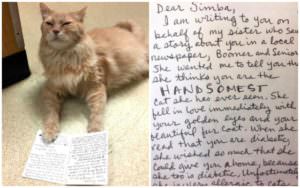 Dear Simba,
I am writing to you on
behalf of my sister who saw
a story about you in a local
newspaper, Boomer and Senior
She wanted me to tell you th
she thinks you are the
HANDSOMEST
cat she has ever seen. She
fell in love immediately with
your golden eyes and your
beautiful fur coat. When she
read that you are diabetic
she wished so much that she
could give you a home, because
she too is diabetic. Unfortunate